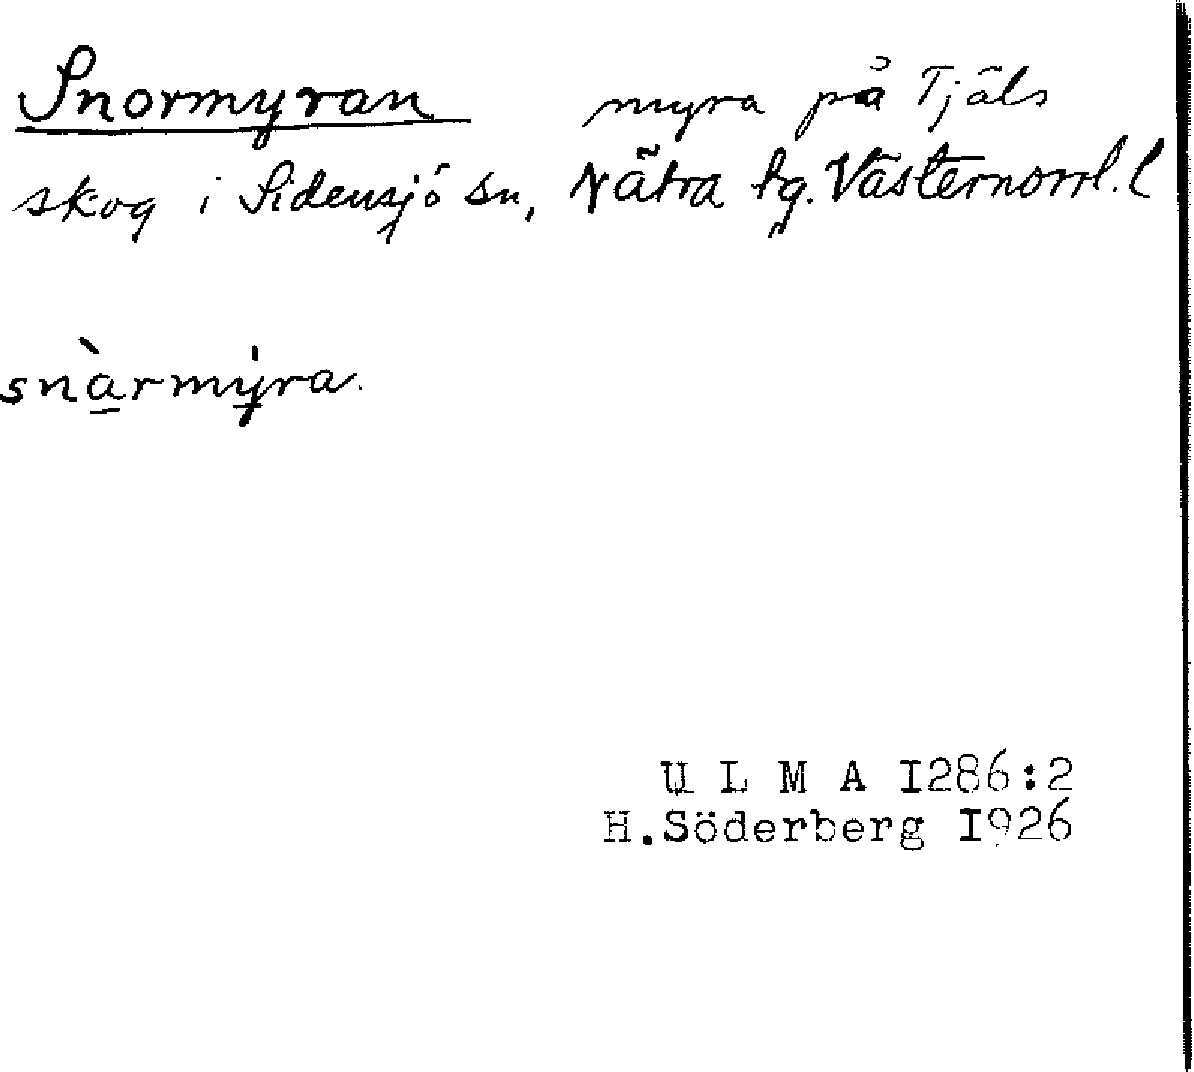 Snormyran myra på Tjäls
skog i Sidensjö sn, Nätra tg. Västernorrl. l
snàrmy̠ra.
U L M A I286:2
H.Söderberg I926